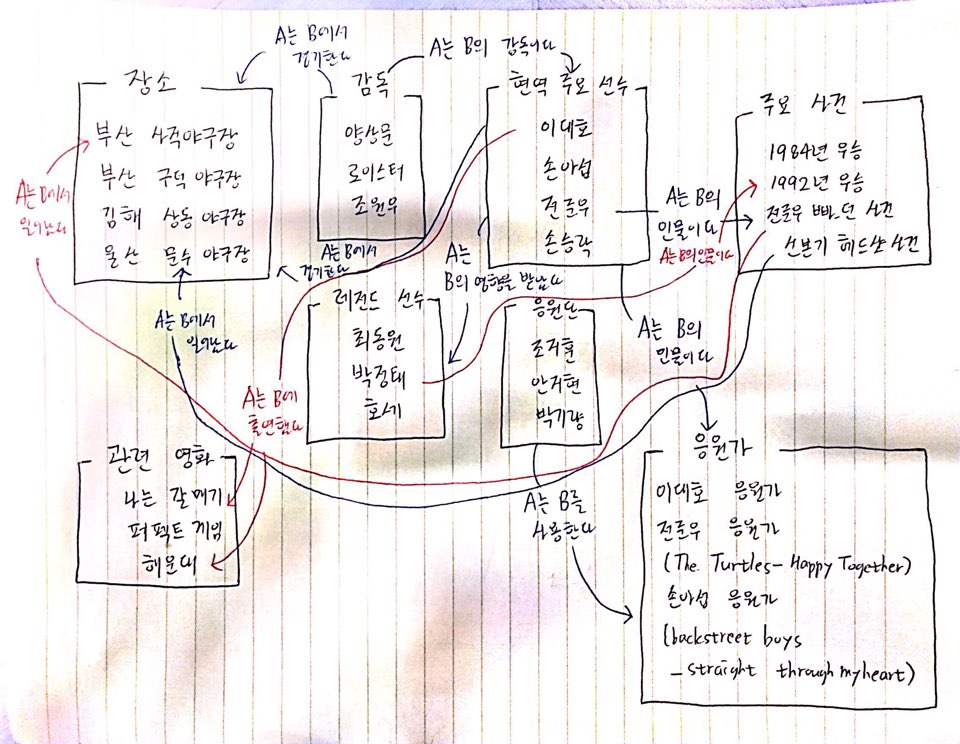 A는 B에서
경기한다
A는 B의 감독이다
장소
부산 사직야구장
부산 구덕 야구장
김해 상동 야구장
울산 문수 야구장
감독
양상문
로이스터
조원우
현역 주요 선수
이대호
손아섭
전준우
손승락
주요 사건
1984년 우승
1992년 우승
전준우 빠던 사건
선본기 헤드샷 사건
A는 B에서
일어났다
A는 B에서
경기한다
A는
B의 영향을 받았다
A는 B의
인물이다
A는 B의 인물이다
A는 B에서
일어났다
레전드 선수
최동원
박정태
호세
응원단
조지훈
안지현
박기량
A는 B의
인물이다
A는 B에
출연했다
관련 영화
나는 갈매기
퍼펙트 게임
해운대
A는 B를
사용한다
응원가
이대호 응원가
전준우 응원가
(The Turtles - Happy Together)
손아섭 응원가
(backstreet boys
- straight through my heart)